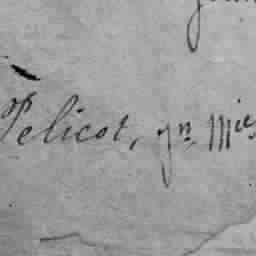 Pelicot, yn Mie